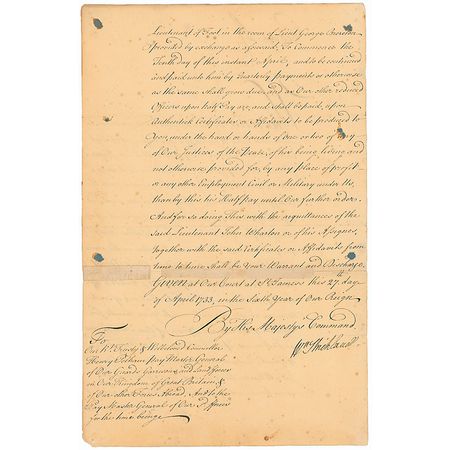 Lieutenant of Foot in the room of Lieut George
provided by exchange as aforesaid, To Commence the
Tenth day of this instant April, and to be continued
and paid unto him by Quarterly payments or otherwise
as the same shall grow due, and as Our other reduced
Officers upon half Pay are, and shall be paid, upon
Authentick Certificates or Affidavits to be produced to
You, under the hand or hands of one or two of any
of Our Justices of the Peace, of his being living and
not otherwise provided for, by any place of profit
or any other Employment Civil or Military under Us,
than by this his Half Pay until Our further order.
And for so doing this with the acquittances of the
said Lieutenant John Wharton or of his Assignes,
together with the said Certificates or Affidavits from
time to time shall be Your Warrant and Discharge
Given at Our Court at St James's this 27th day
of April 1733, in the Sixth Year of Our Reign
By His Majestys Command
To
Our Rt Trusty & Welbeloved Councillor
Henry Pelham Pay Master General
of Our Guards Garrisons and Land forces
in Our Kingdom of Great Britain, &
of Our other Forces Abroad, And to the
Pay Master General of Our sd fforces
for the time being